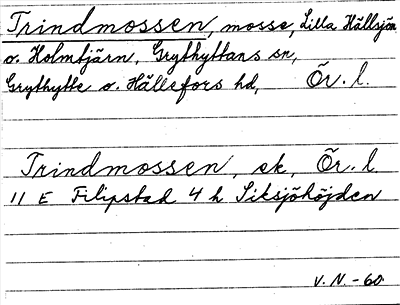 Trindmossen, mosse, Lilla Hällsjön
o. Holmtjärn, Grythyttans sn,
Grythytte o. Hällefors hd, Ör. l.
Trindmossen, ek, Ör. l.
11 E Filipstad 4 h Siksjöhöjden
V. N. -60.